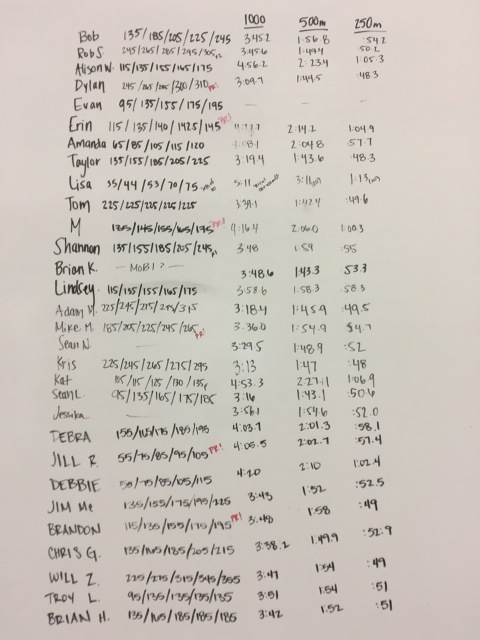 1000 500m 250m
Bob 135/185/205/225/245 3:45.2 1:56.8 :54.2
Rob S. 245/265/285/295/305 3:45.6 1:49.4 50.2
Alison W. 115/135/155/165/175 4:56.2 2:23.4 1:05.3
Dylan 245/265/285/300/310 PR! 3:09.7 1:44.5 :48.3
Evan 95/135/155/175/195 — — —
Erin 115/135/140/142.5/145 PR! 2:14.2 1:04.9
Amanda 65/85/105/115/120 2:04.8 57.7
Taylor 135/155/185/205/225 3:19.4 1:43.6 :48.3
Lisa 35/44/53/70/75 5:11 3:11 1:13
Tom 225/225/225/225/225 3:39.1 1:42.4 :49.6
M 135/145/155/165/175 PR! 4:16.4 2:06.0 1:00.3
Shannon 135/155/185/205/245 3:48 1:59 :55
Brian K. — MOB1? — 3:48.6 1:43.3 53.3
Lindsey 115/135/155/165/175 3:58.6 1:58.3 58.3
Adam 225/245/275/295/315 3:18.4 1:45.9 :49.5
Mike M. 185/205/225/245/265 PR! 3:36.0 1:54.9 54.7
Sean N. 3:29.5 1:48.9 :52
Kris 225/245/265/275/295 3:13 1:47 :48
Kat 105/115/125/130/135 4:53.3 2:27.1 1:06.9
Sean L. 95/135/165/175/185 3:16 1:43.1 :50.6
Jessika — 3:56.1 1:54.6 :52.0
DEBRA 155/165/175/185/195 4:03.7 2:01.3 :58.1
JILL R. 55/75/85/95/105 PR! 4:05.5 2:02.7 :57.4
DEBBIE 55/75/85/105/115 4:20 2:10 1:02.4
JIM Mc 135/155/175/195/225 3:43 1:52 :52.5
BRANDON 115/135/155/175/195 PR! 3:48 1:58 :49
CHRIS G. 135/165/185/205/215 3:38.2 1:49.9 :52.9
WILL Z. 225/275/315/345/355 3:47 1:54 :49
TROY L. 95/135/135/135/135 3:51 1:54 :51
BRIAN H. 135/165/185/185/185 3:42 1:52 :51